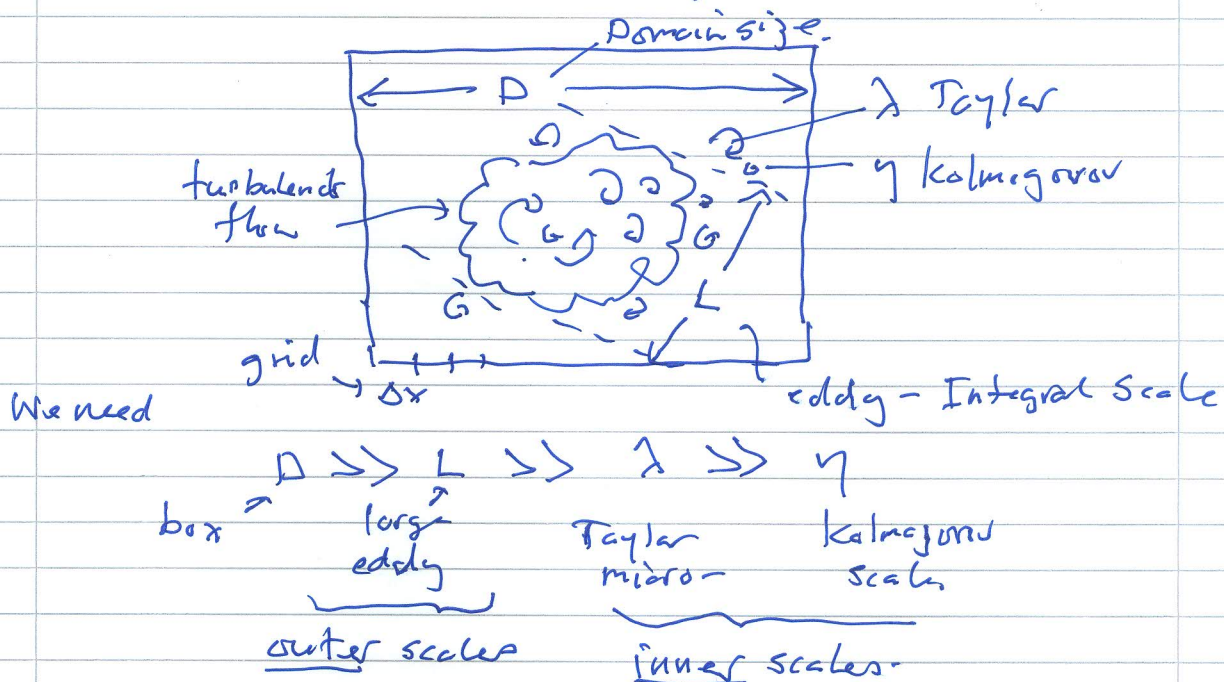 Domain size.
D
λ Taylor
η Kolmogorov
turbulends
flow
L
grid
Δx
eddy - Integral Scale
We need
D >> L >> λ >> η
box
large
eddy
Taylor
micro-
Kolmogorov
scale
outer scales
inner scales.